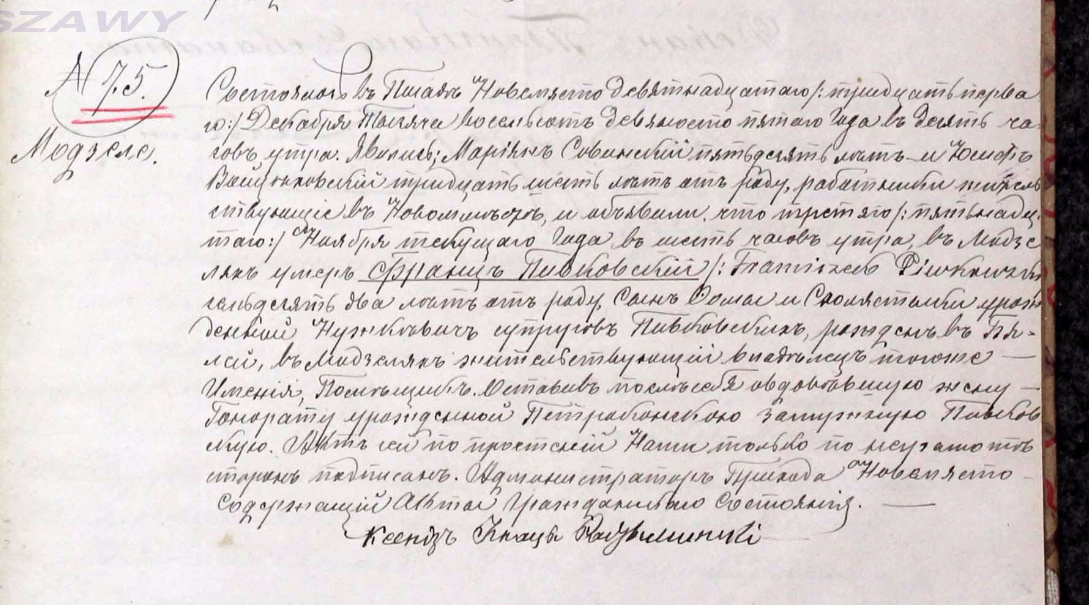 SZAWY
№ 75.
Модзеле.
Состоялось въ Посадѣ Новемясто девятнадцатаго /: тридцать перва
го :/ Декабря Тысяча восемьсотъ девяносто пятаго Года въ десять ча-
совъ утра. Явились; Маріянъ Совинскій пятьдесятъ лѣтъ и Юсифъ
тридцать шесть лѣтъ отъ роду, работники житель
ствующіе въ Новомъмѣстѣ, и объявили, что третяго /: пятьнадца
таго :/ Ноября текущаго Года въ шесть часовъ утра, въ Модзе
ляхъ умеръ Францъ Пивковскій /: Franciszek Piwkowski
семьдесятъ два лѣтъ отъ роду, сынъ Ѳомы и Схолястыки урож
денной супруговъ Пивковскихъ, рожденъ въ Бя-
лей, въ Модзеляхъ жительствующій владѣлецъ тогоже
Имѣнія, Помѣщикъ. Оставивъ послѣ себя овдовѣвшую жену
Гонорату урожденной замужную Пивков
скую. Актъ сей по прочтеніи Нами только по неграмотѣ
сторонъ подписанъ. Администраторъ Прихода Новемясто
Содержащій Акты Гражданскаго Состоянія.
Ксендзъ